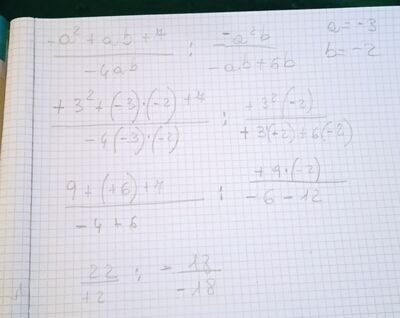 -a² + ab + 7 / -4ab : -a²b / -ab + 6b a = -3
b = -2
+3² + (-3) · (-2) + 7 / -4 (-3) · (-2) : +3² (-2) / +3 (-2) + 6 (-2)
9 + (+6) + 7 / -4 + 6 : +9 · (-2) / -6 - 12
22 / +2 : - 18 / -18